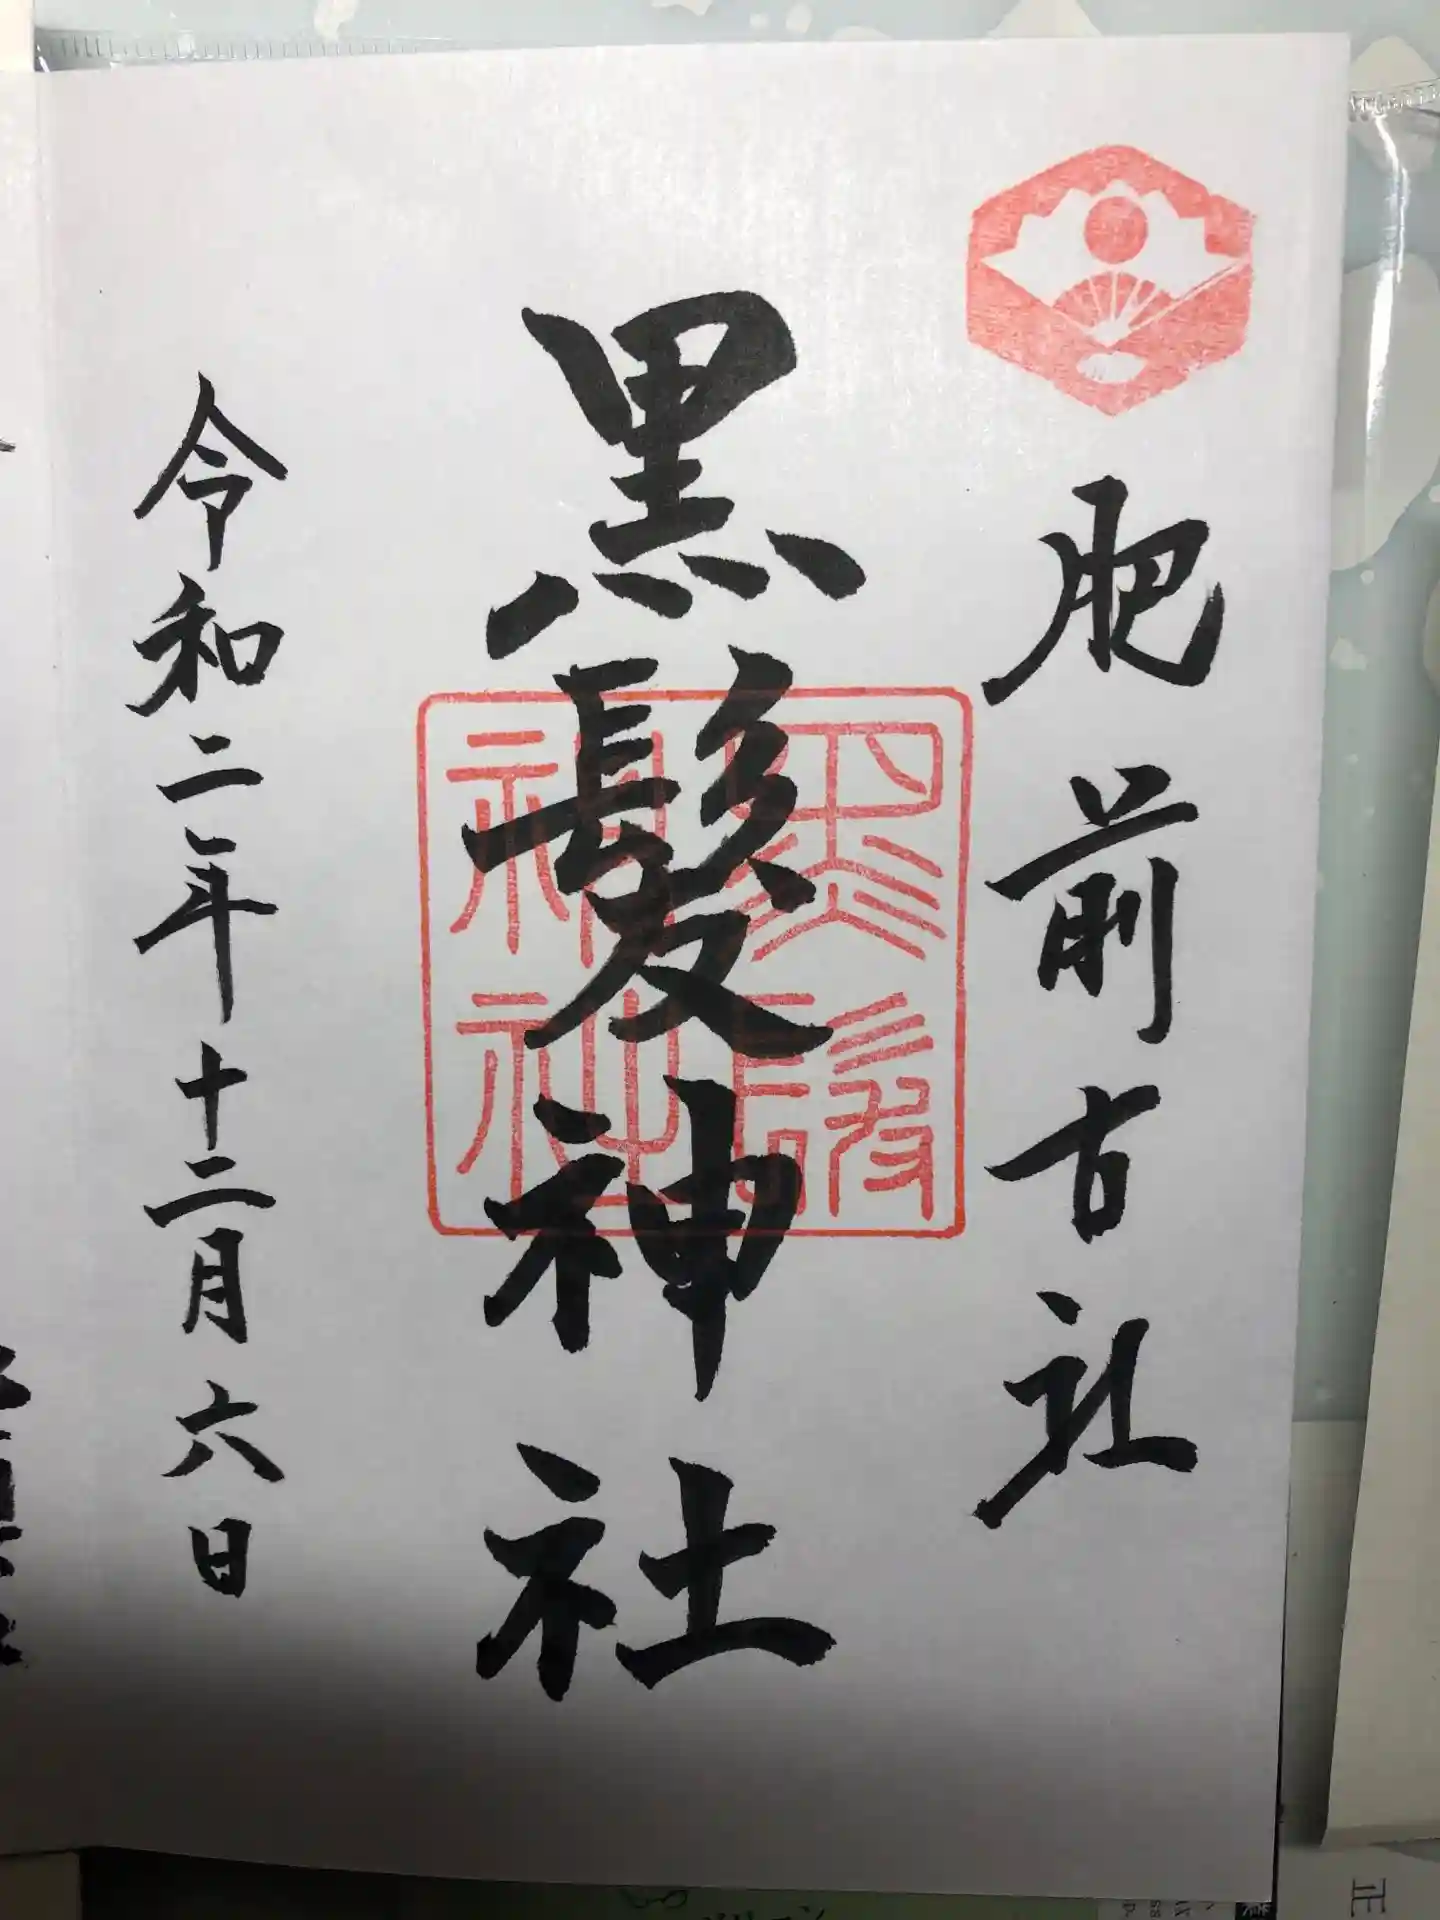 肥前古社
黒髪神社
黒髪神社
令和二年十二月六日
正